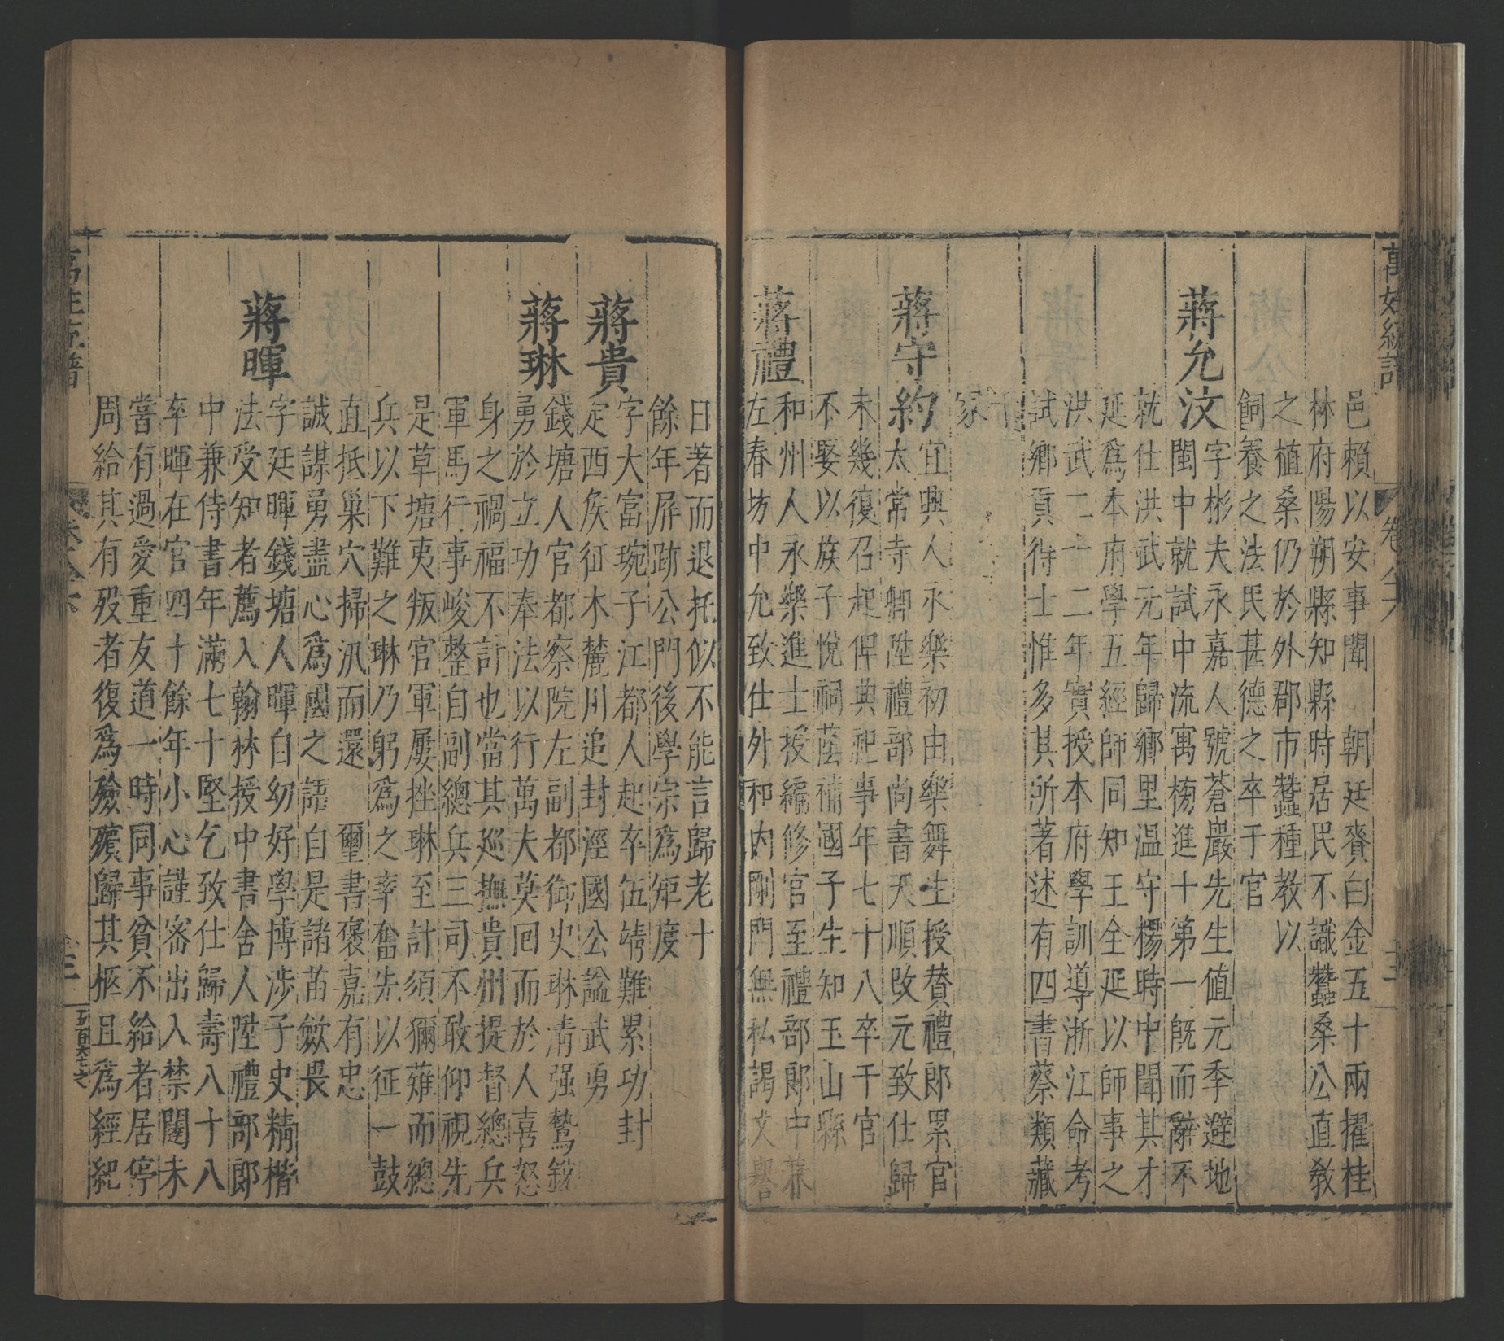 邑賴以安事聞　朝廷賚白金五十兩擢桂
林府陽朔縣知縣時居民不識蠶桑公直教
之植桑仍於外郡市蠶種教以
飼養之法民甚德之卒于官
蔣允汶字彬夫永嘉人號蒼巖先生值元季避地
閩中就試中流寓榜進士第一旣而辭不
就仕洪武元年歸鄉里温守楊時中聞其才
延爲本府學五經師同知王全延以師事之
洪武二十二年實授本府學訓導浙江命考
試鄉貢得士惟多其所著述有四書蔡類藏
于
家
蔣守約宜興人永樂初由樂舞生授贊禮郎累官
太常寺卿陞禮部尚書天順改元致仕歸
未幾復召起俾典祀事年七十八卒于官
不娶以族子悅祠蔭補國子生知玉山縣
蔣禮和州人永樂進士授編修官至禮部郎中
左春坊中允致仕外和内剛門無私謁文譽
日著而退托似不能言歸老十
餘年屏跡公門後學宗爲矩度
蔣貴字大富琬子江都人起卒伍靖難累功封
定西侯征木麓川追封涇國公諡武勇
蔣琳錢塘人官都察院左副都御史琳清强鷙銳
勇於立功奉法以行萬夫莫回而於人喜怒
身之禍福不計也當其巡撫貴州提督總兵
軍馬行事峻整自副總兵三司不敢仰視先
是草塘夷叛官軍屢挫琳至計須獮薙而總
兵以下難之琳乃躬爲之率奮先以征一鼓
直抵巢穴掃汛而還　璽書褒嘉有忠
誠謀勇盡心爲國之語自是諸苗歛畏
蔣暉字廷暉錢塘人暉自幼好學博涉子史精楷
法受知者薦入翰林授中書舍人陞禮部郎
中兼侍書年滿七十堅乞致仕歸壽八十八
卒暉在官四十餘年小心謹密出入禁闥未
嘗有過愛重友道一時同事貧不給者居停
周給其有歿者復爲殮殯歸其柩且爲經紀